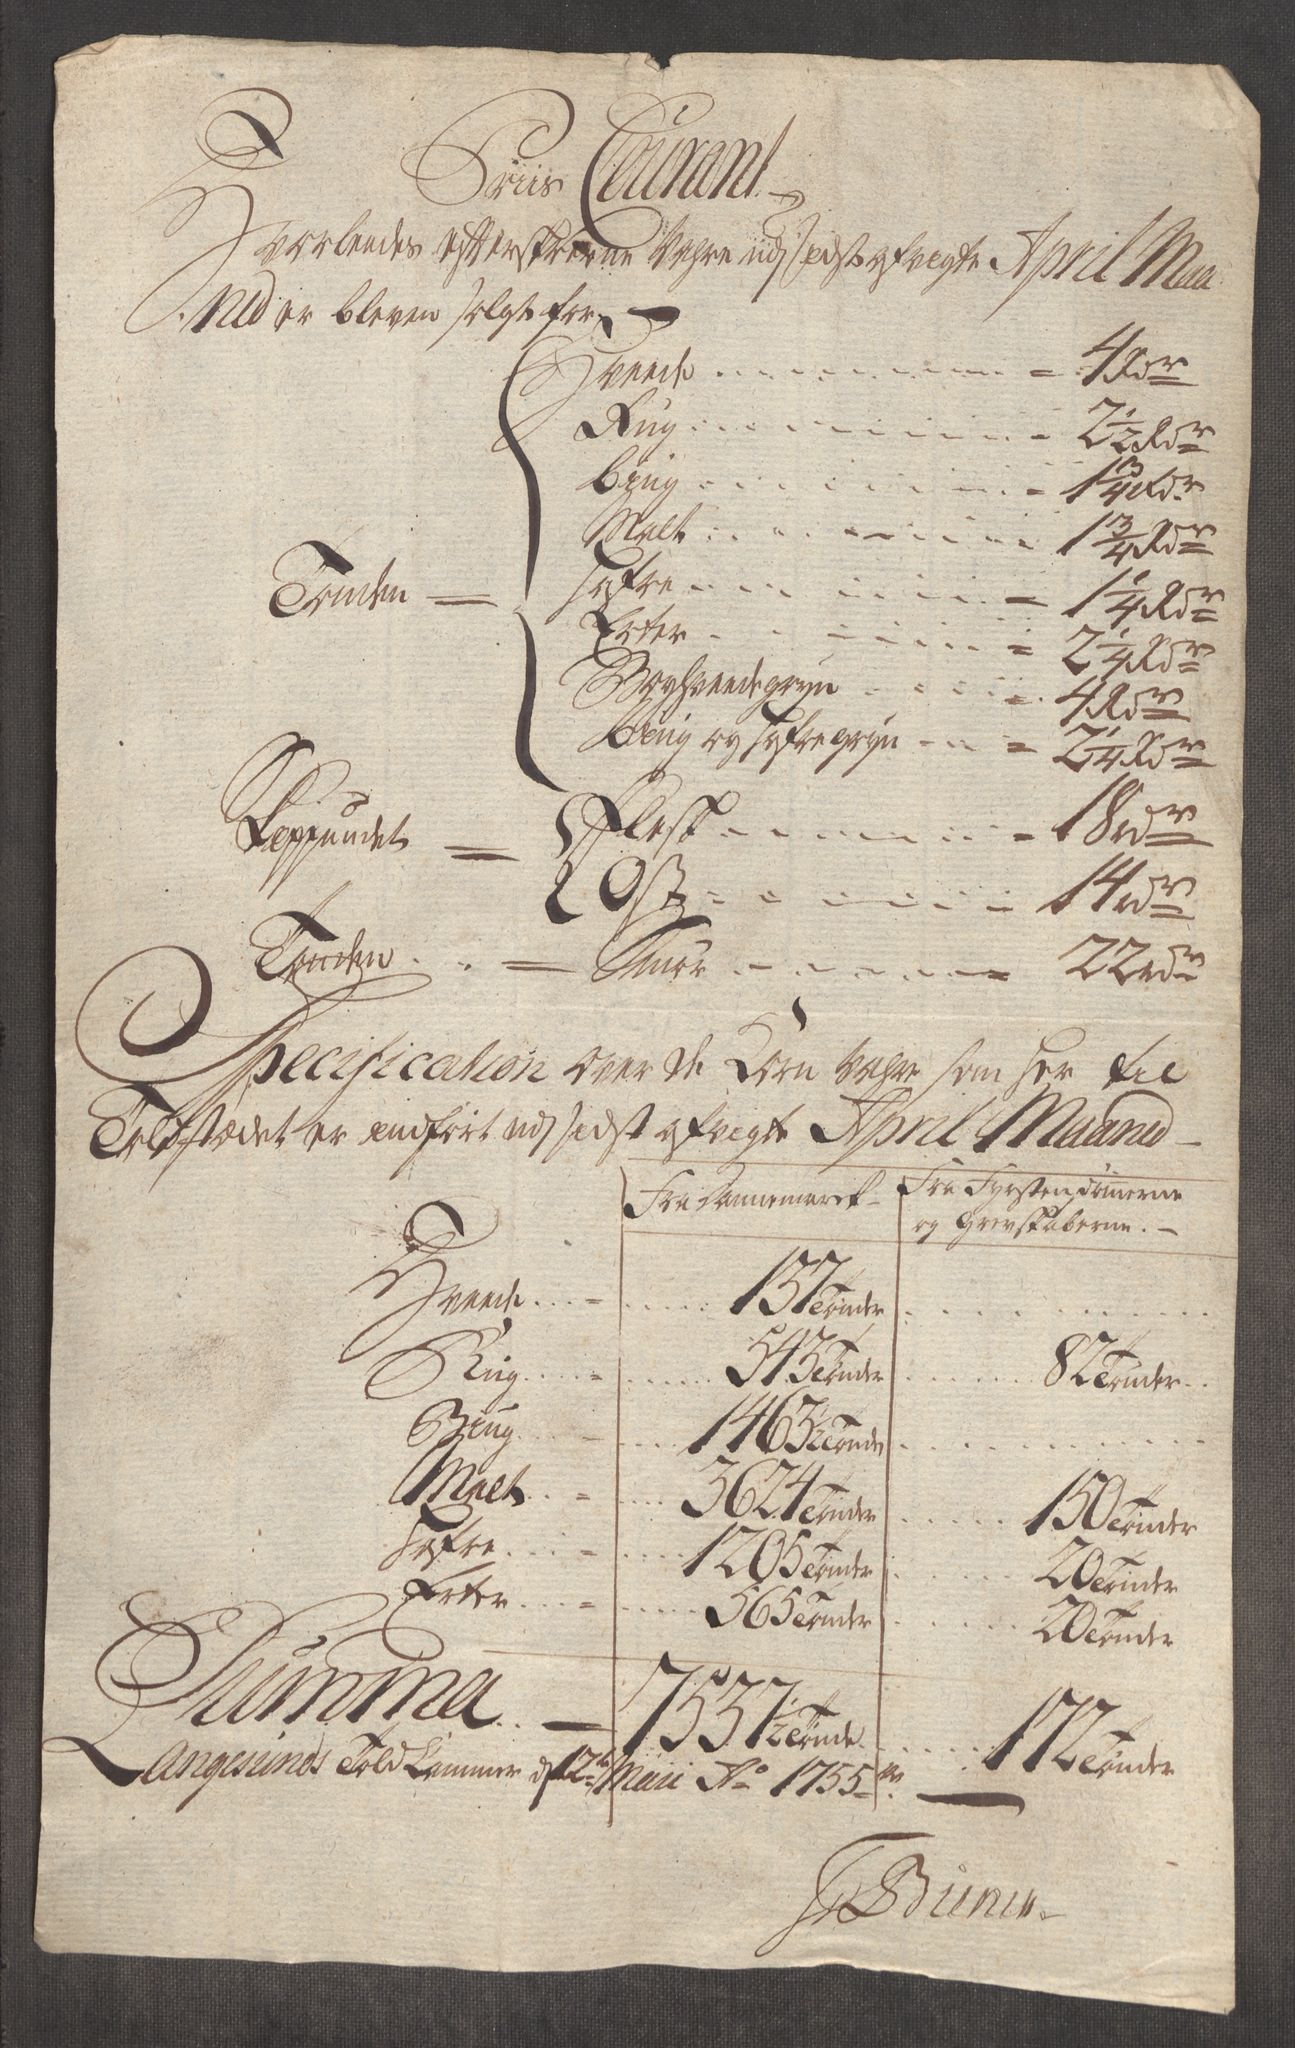 Priis Courant
Hvorleedes efterskrevne Vahre udj sidst afvigte April Maa
ned er bleven solgt for
Hveede 4 Rdr
Rug 2 1/2 Rdr
Byug 1 3/4 Rdr
Malt 1 3/4 Rdr
Tønden = Hafre 1 1/4 Rdr
Erter 2 1/4 Rdr
Boghveedegryn 4 Rdr
Byug og Hafregryn 2 1/4 Rdr
Skippundet = Flesk 18 rdr
Ost 14 rdr
Tønden = Smør 22 rdr
Specification over de Korn Vahre som her til
Toldstædet er indført udj sidst afvigte April Maaned
Fra Dannemarck Fra Fyrstendømerne
og Grevskaberne.
Hveede 137 Tønder
Rug 543 Tønder 82 Tønder
Byug 1463 1/2 Tønder
Malt 3624 Tønder 150 Tønder
Hafre 1205 Tønder 20 Tønder
Erter 565 Tønder 20 Tønder
Summa 7537 1/2 Tønde 172 Tønder
Langesunds Told Kammer d 12te Maii Ao 1755